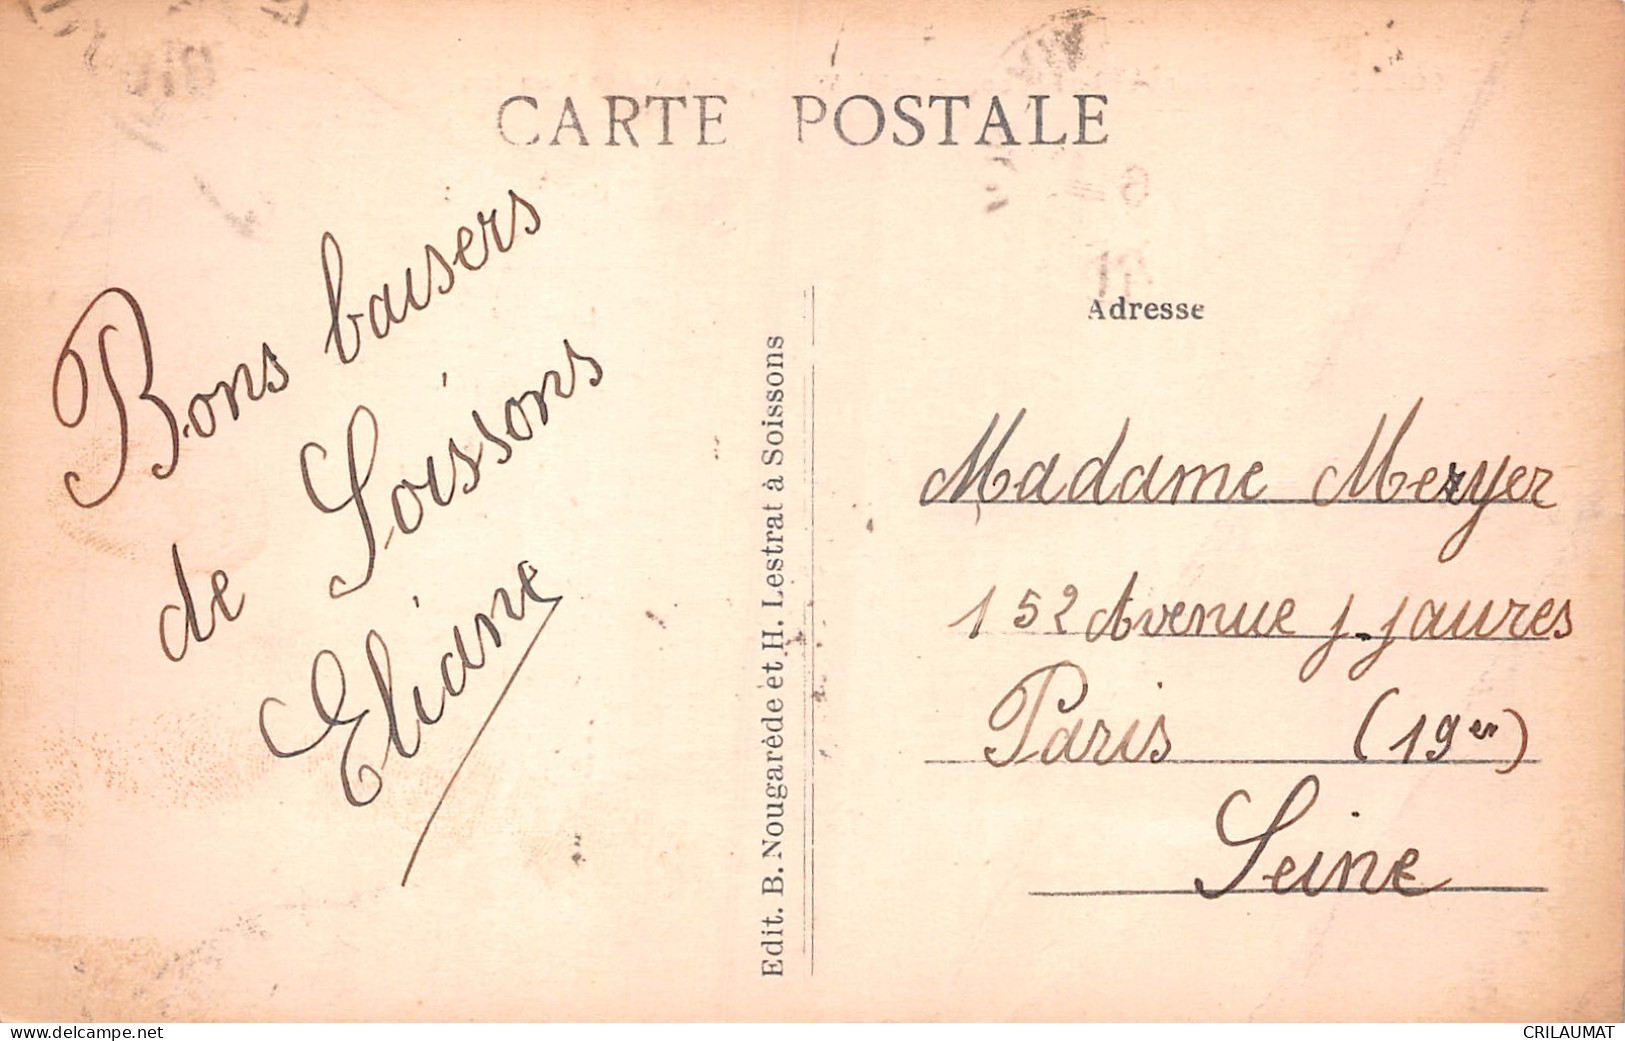 CARTE POSTALE
Bons baisers
de Soissons
Eliane
Edit. B. Nougarède et H. Lestrat à Soissons
Adresse
Madame Meryer
152 Avenue J. Jaures
Paris (19er)
Seine
www.delcampe.net
CRILAUMAT